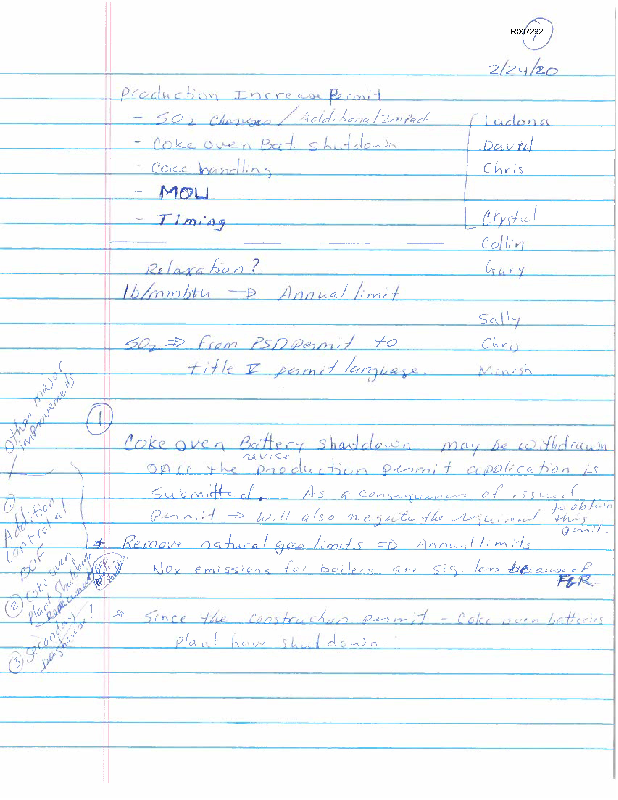 R007292
1
2/24/20
Production Increase Permit
- SO2 Changes / Additional Impact
- Coke oven Bat. shutdown
- Coke handling
- MOU
- Timing
Ludona
David
Chris
Crystal
Collin
Gary
Sally
Chris
Manish
Relaxation?
lb/mmbtu → Annual limit
SO2 ⇒ From PSD permit to
title V permit language.
Other major
improvements
1
Coke oven Battery Shutdown may be withdrawn
revise
once the production permit application is
submitted. As a consequence of issued
permit ⇒ will also negate the
to obtain
this
permit.
* Remove natural gas limits ⇒ Annual limits
NOx emissions for boilers are sig. less because of
FGR.
* Since the construction permit - Coke oven batteries
plant have shutdown
① Addition
Control at
BOF
② Coke oven
Plant Shutdown
③ Secondary